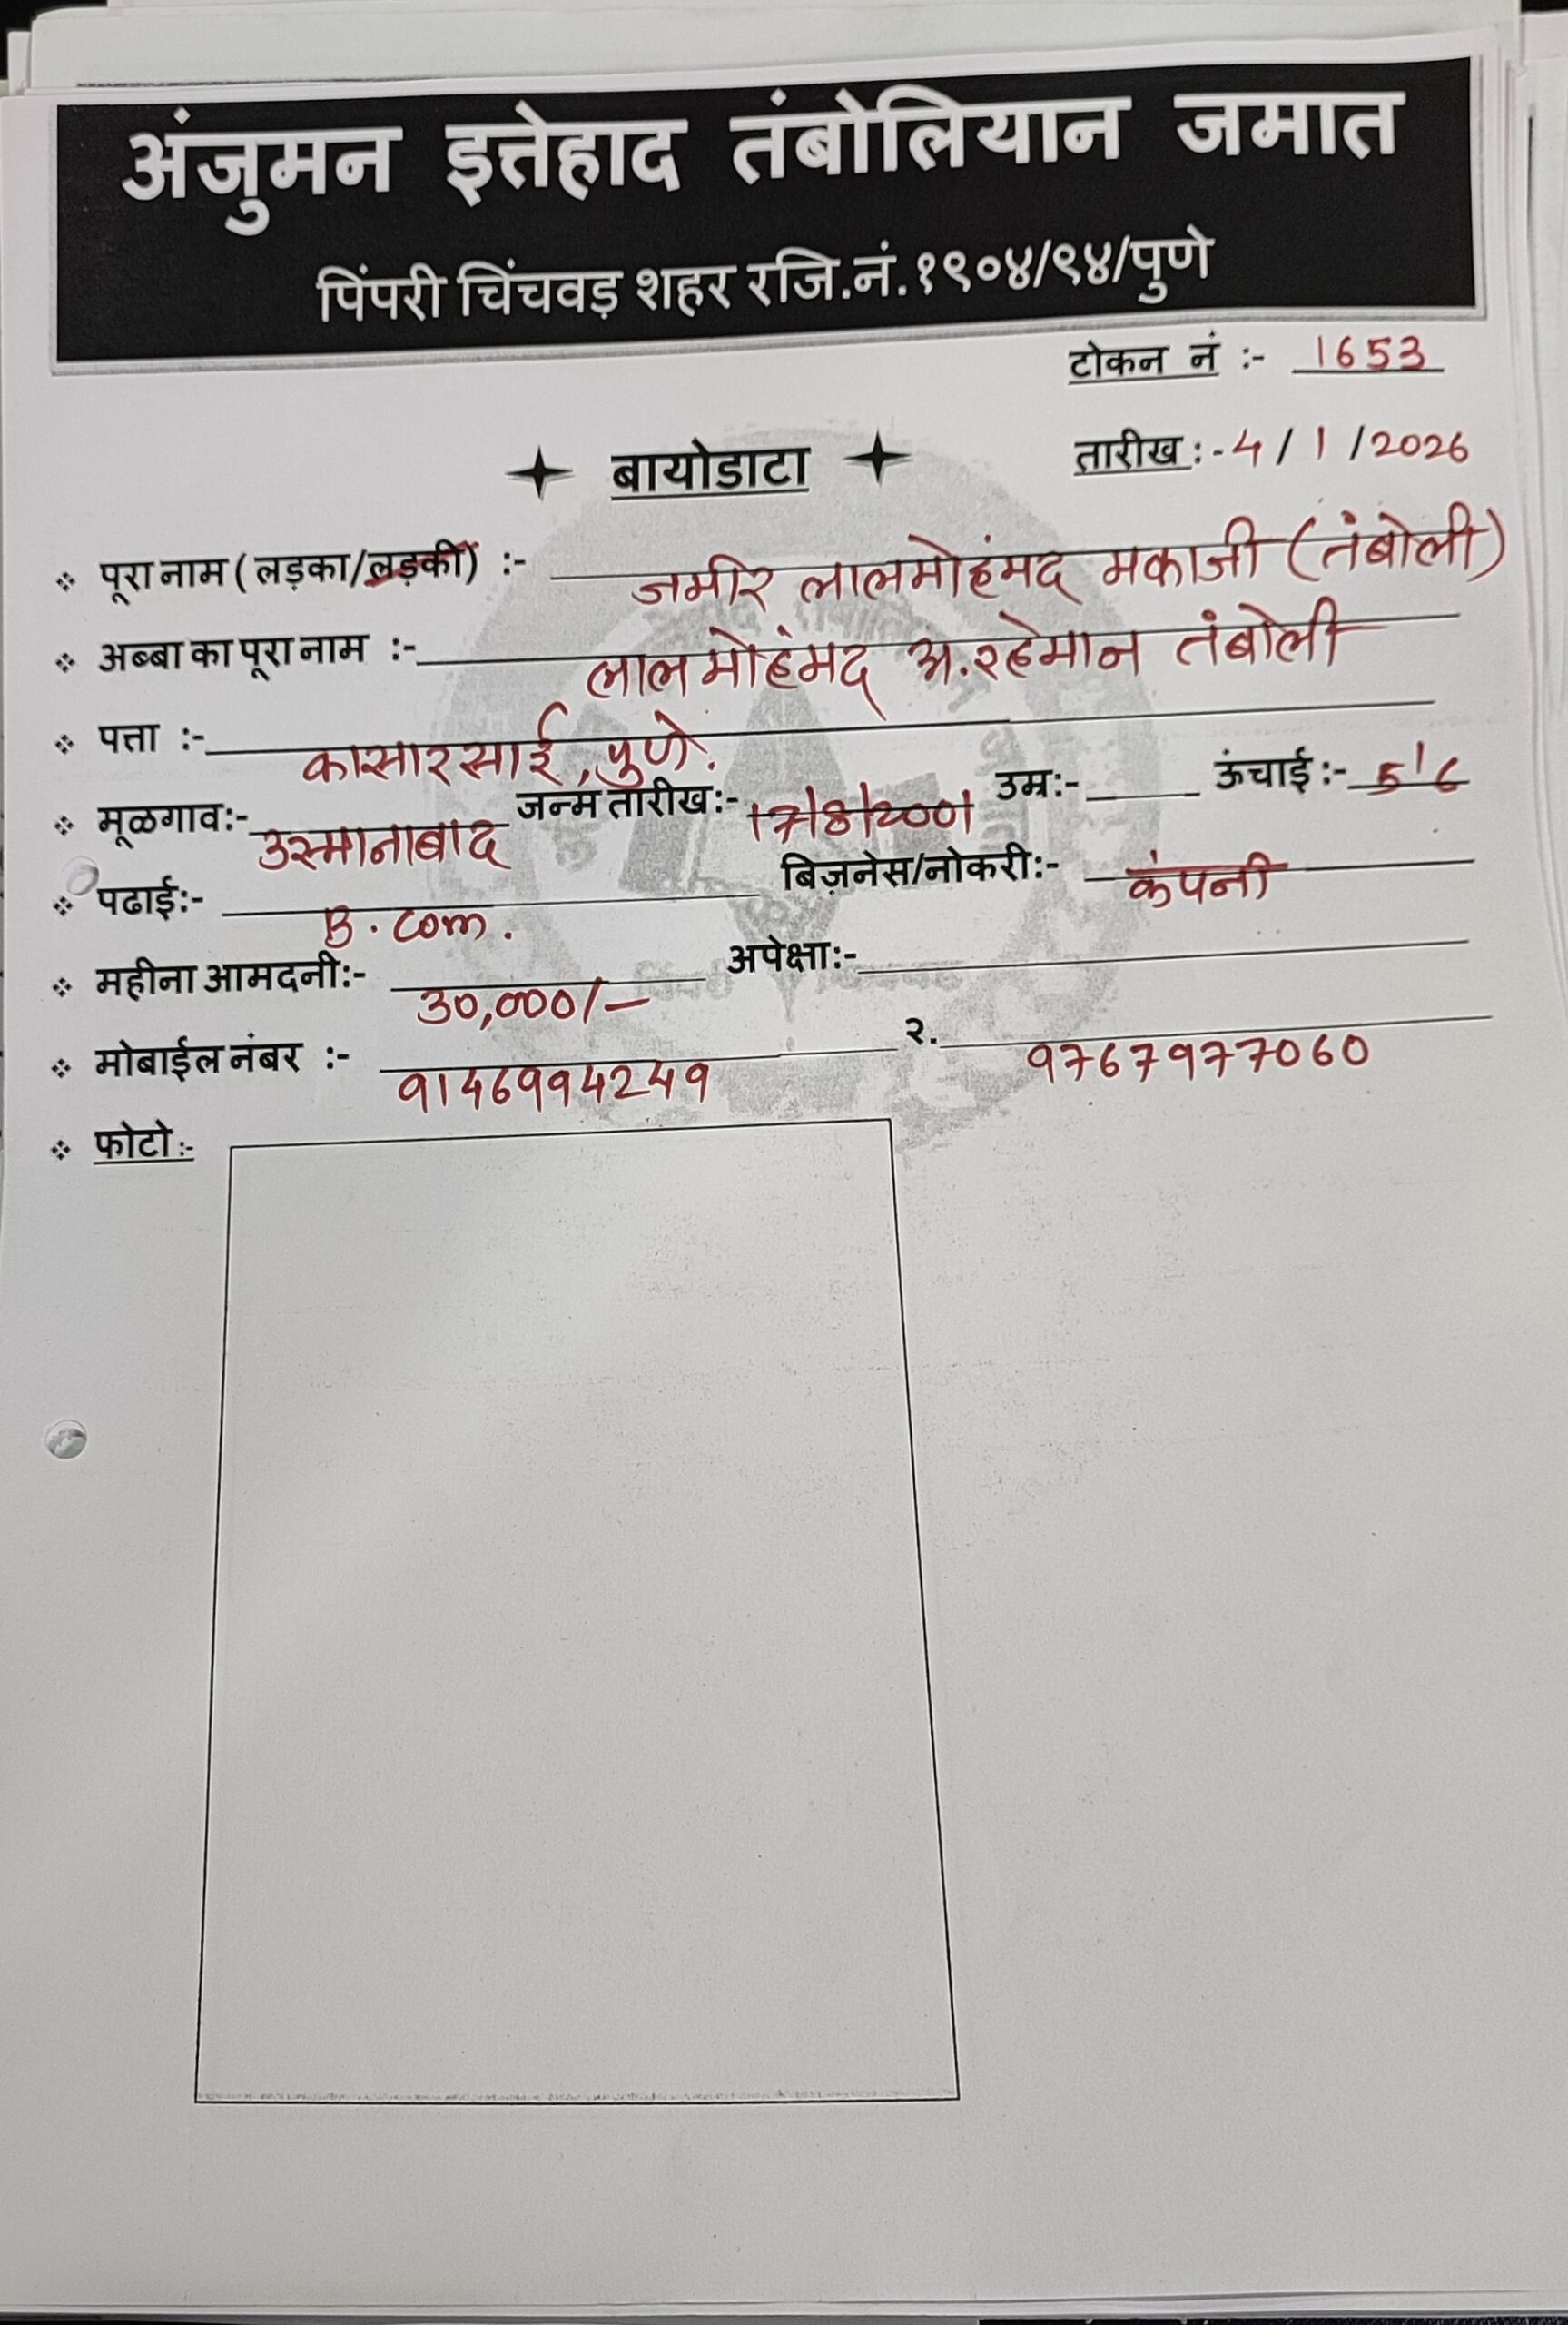 अंजुमन इत्तेहाद तंबोलियान जमात
पिंपरी चिंचवड़ शहर रजि.नं.१९०४/९४/पुणे
टोकन नं :- 1653
तारीख :- 4 / 1 / 2026
बायोडाटा
पूरा नाम ( लड़का/लड़की) :- जमीर लालमोहंमद मकाजी (तंबोली)
अब्बा का पूरा नाम :- लालमोहंमद अ.रहेमान तंबोली
पत्ता :- कासारसाई, पुणे.
मूळगाव:- उस्मानाबाद जन्म तारीख:- 17/8/2001 उम्र:- ऊंचाई :- 5'6
पढाई:- B.com. बिज़नेस/नोकरी:- कंपनी
महीना आमदनी:- 30,000/- अपेक्षा:-
मोबाईल नंबर :- 9146994249 २. 9767977060
फोटो :-